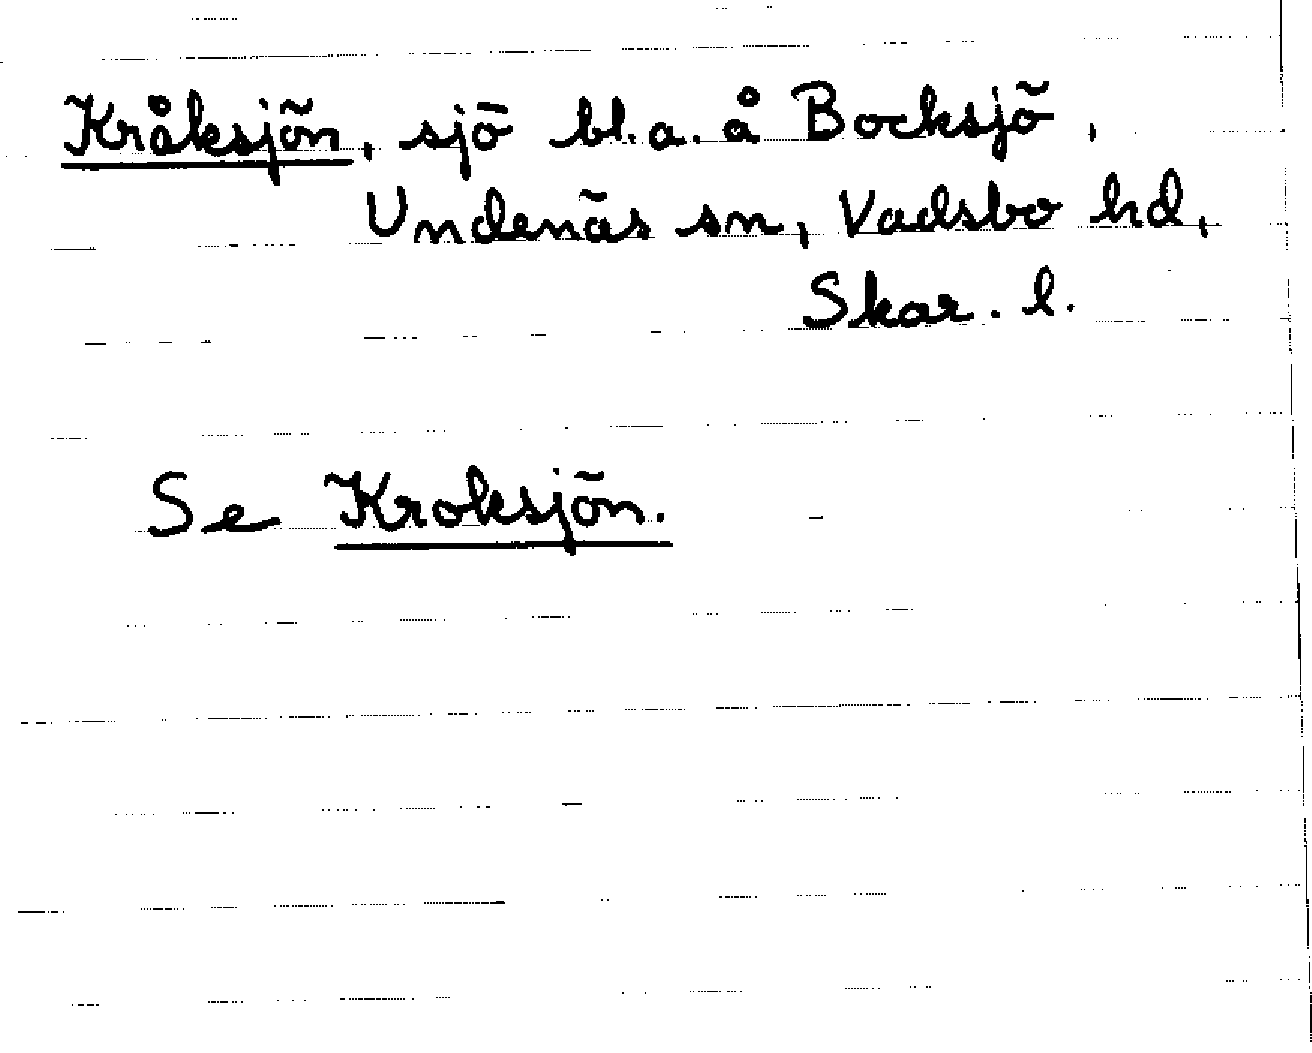 Kråksjön, sjö bl.a. å Bocksjö,
Undenäs sn, Vadsbo hd,
Skar. l.
Se Kroksjön.